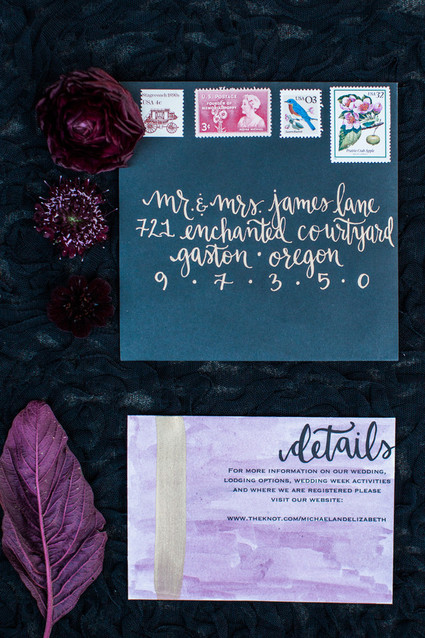 Stagecoach 1890s
USA 4c
U.S. Postage
3¢
USA 03
USA 32
mr. & mrs. james lane
721 enchanted courtyard
gaston · oregon
9 · 7 · 3 · 5 · 0
details
For more information on our wedding,
lodging options, wedding week activities
and where we are registered please
visit our website:
www.theknot.com/michaelandelizabeth